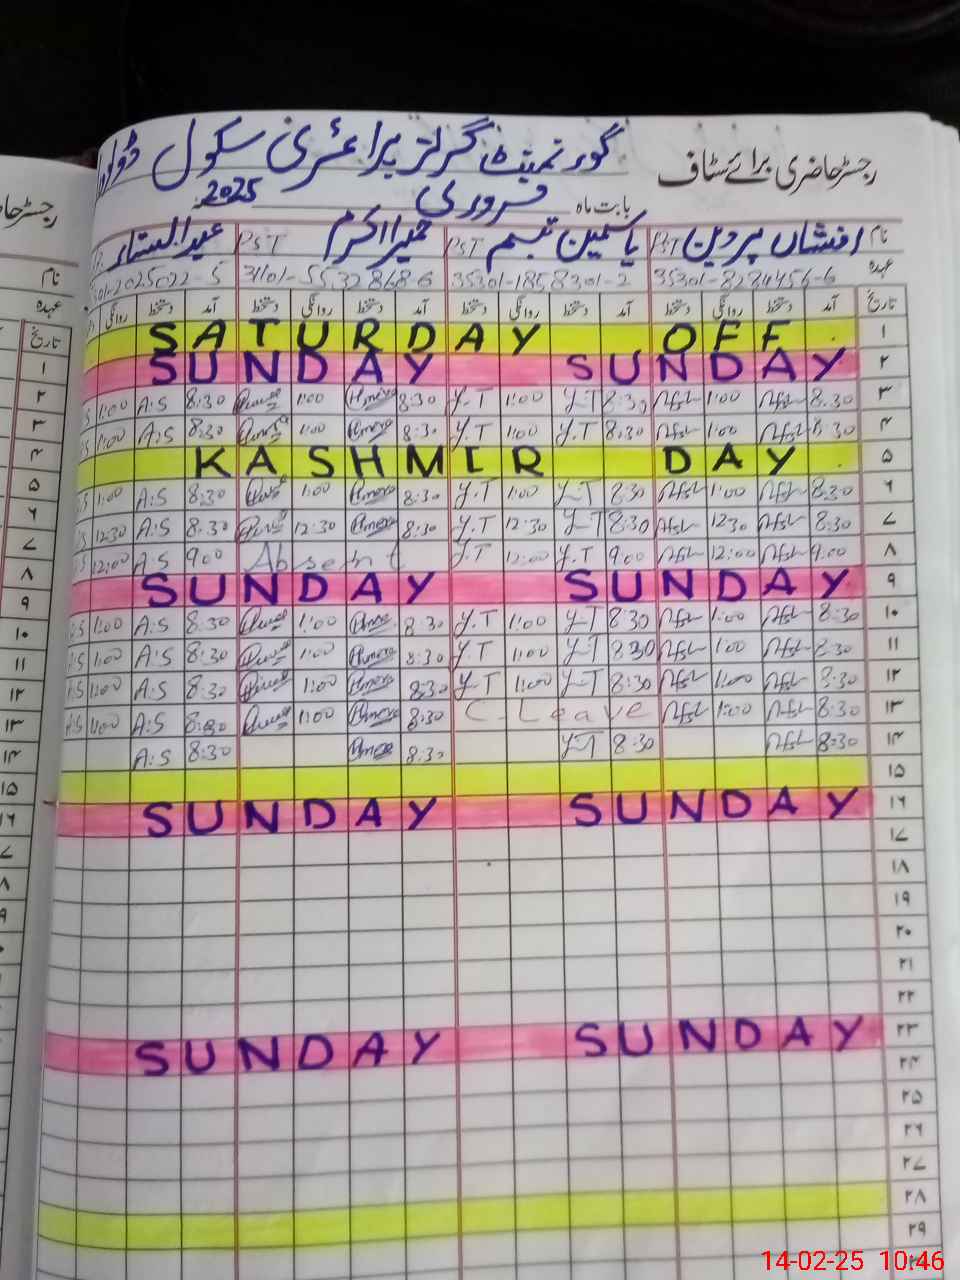 رجسٹر حاضری برائے سٹاف
گورنمنٹ گرلز پرائمری سکول
بابت ماہ فروری 2025
نام افشاں پروین PST یاسمین تبسم PST حمیرا اکرم PST عبدالستار
عہدہ 35301-8284456-6 35301-1858301-2 3101-5532868-6
تاریخ آمد دستخط روانگی دستخط آمد دستخط روانگی دستخط آمد دستخط روانگی دستخط آمد دستخط روانگی
۱ SATURDAY OFF
۲ SUNDAY SUNDAY
۳ 1:00 A:S 8:30 1:00 8:30 Y.T 1:00 Y.T 8:30 Afsh 1:00 Afsh 8:30
۴ 1:00 A:S 8:30 1:00 8:30 Y.T 1:00 Y.T 8:30 Afsh 1:00 Afsh 8:30
۵ KASHMIR DAY
۶ 1:00 A:S 8:30 1:00 8:30 Y.T 1:00 Y.T 8:30 Afsh 1:00 Afsh 8:30
۷ 12:30 A:S 8:30 12:30 8:30 Y.T 12:30 Y.T 8:30 Afsh 12:30 Afsh 8:30
۸ 12:00 A:S 9:00 Absent Y.T 12:00 Y.T 9:00 Afsh 12:00 Afsh 9:00
۹ SUNDAY SUNDAY
۱۰ 1:00 A:S 8:30 1:00 8:30 Y.T 1:00 Y.T 8:30 Afsh 1:00 Afsh 8:30
۱۱ 1:00 A:S 8:30 1:00 8:30 Y.T 1:00 Y.T 8:30 Afsh 1:00 Afsh 8:30
۱۲ 1:00 A:S 8:30 1:00 8:30 Y.T 1:00 Y.T 8:30 Afsh 1:00 Afsh 8:30
۱۳ 1:00 A:S 8:30 1:00 8:30 C-Leave Afsh 1:00 Afsh 8:30
۱۴ A:S 8:30 8:30 Y.T 8:30 Afsh 8:30
۱۵
۱۶ SUNDAY SUNDAY
۱۷
۱۸
۱۹
۲۰
۲۱
۲۲
۲۳ SUNDAY SUNDAY
۲۴
۲۵
۲۶
۲۷
۲۸
۲۹
14-02-25 10:46
نام
عہدہ
تاریخ
۱
۲
۳
۴
۵
۶
۷
۸
۹
۱۰
۱۱
۱۲
۱۳
۱۴
۱۵